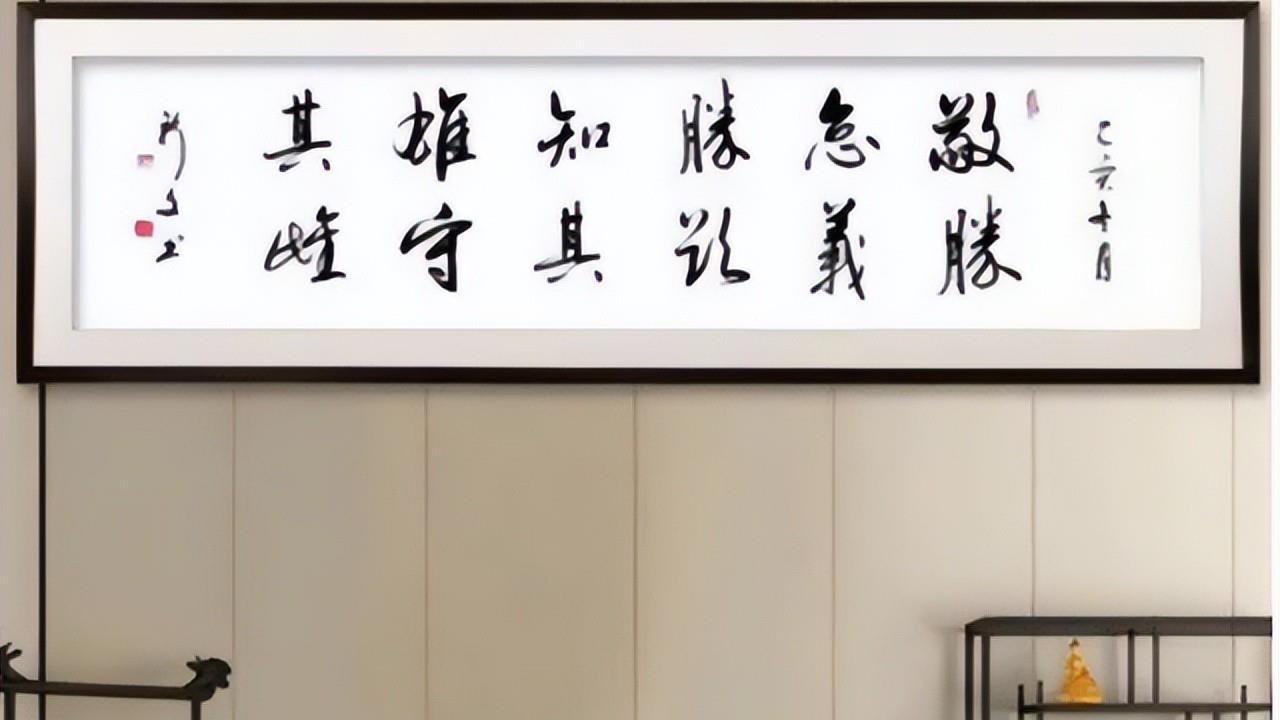 己亥十月
敬勝
怠義
勝欲
知其
雄守
其雌